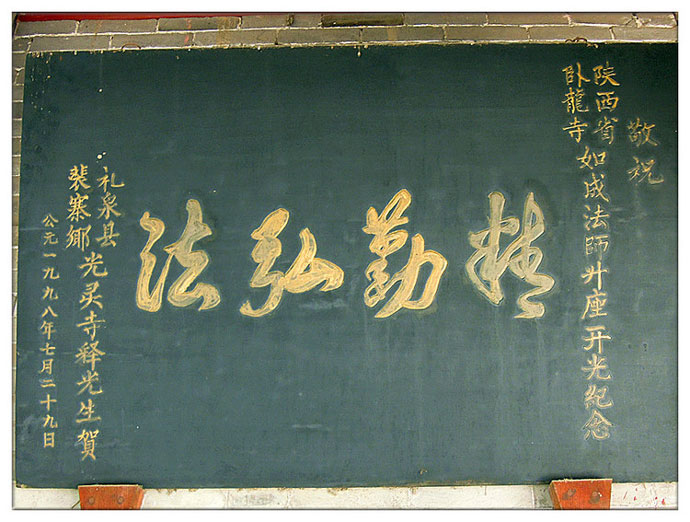 敬祝
陕西省
卧龍寺
如成法師升座开光紀念
精勤弘法
礼泉县
裴寨鄉
光灵寺释光生賀
公元一九九八年七月二十九日